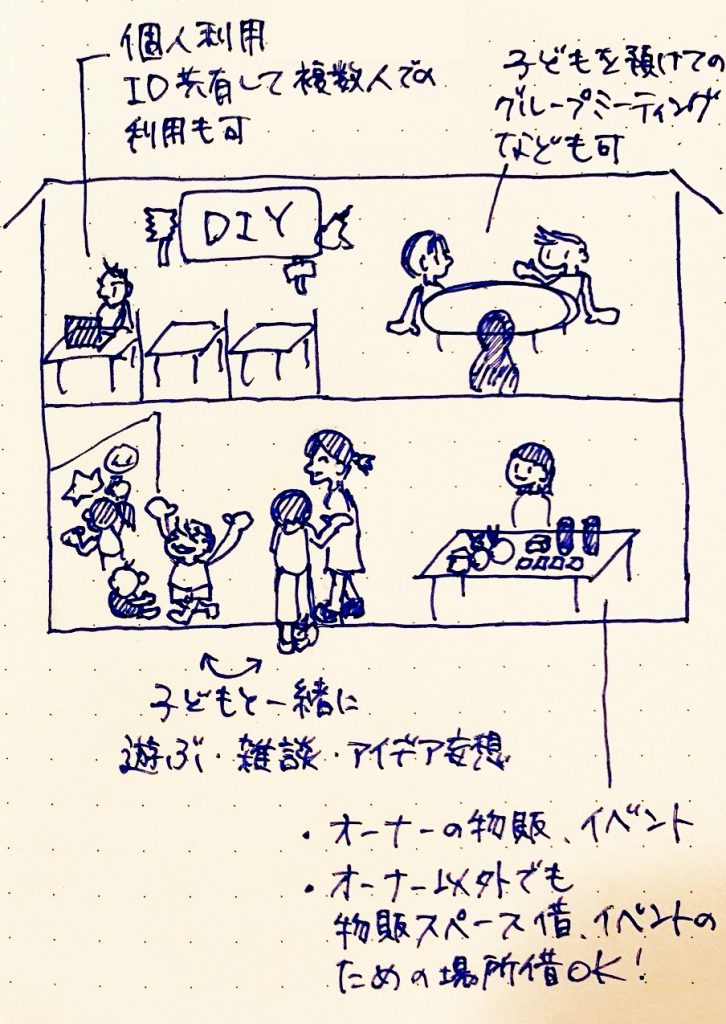 個人利用
ID共有して複数人での
利用も可
子どもを預けての
グループミーティング
なども可
DIY
子どもと一緒に
遊ぶ・雑談・アイデア妄想
・オーナーの物販、イベント
・オーナー以外でも
物販スペース借、イベントの
ための場所借OK!